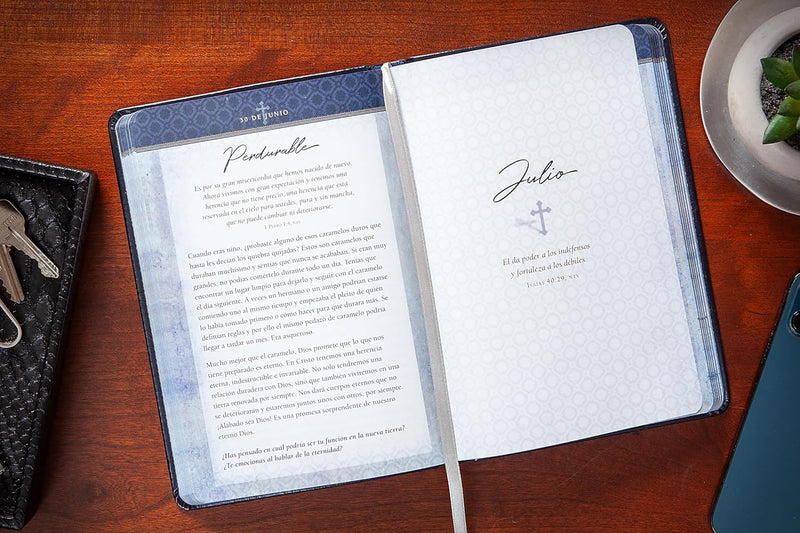 30 DE JUNIO
Perdurable
Es por su gran misericordia que hemos nacido de nuevo.
Ahora vivimos con gran expectación y tenemos una
herencia que no tiene precio, una herencia que está
reservada en el cielo para ustedes, pura y sin mancha,
que no puede cambiar ni deteriorarse.
Cuando eras niño, ¿probaste alguno de esos caramelos duros que
hasta les decían los quiebra quijadas? Estos son caramelos que
duraban muchísimo y sentías que nunca se acababan. Si eran muy
grandes, no podías comértelo durante todo un día. Tenías que
encontrar un lugar limpio para dejarlo y seguir con el caramelo
el día siguiente. A veces un hermano o un amigo podrían estarse
comiendo uno al mismo tiempo y empezaba el pleito de quién
lo había tomado primero o cómo hacer para que durara más. Se
definían reglas y por ello el mismo pedazo de caramelo podría
llegar a tardar un mes. Era asqueroso.
Mucho mejor que el caramelo, Dios promete que lo que nos
tiene preparado es eterno. En Cristo tenemos una herencia
eterna, indestructible e invariable. No solo tendremos una
relación duradera con Dios, sino que también viviremos en una
tierra renovada por siempre. Nos dará cuerpos eternos que no
se deteriorarán y estaremos juntos unos con otros, por siempre
¡Alabado sea Dios! Es una promesa sorprendente de nuestro
eterno Dios.
¿Has pensado en cuál podría ser tu función en la nueva tierra?
¿Te emocionas al hablar de la eternidad?
Julio
El da poder a los indefensos
y fortaleza a los débiles.
Isaías 40:29, NTV